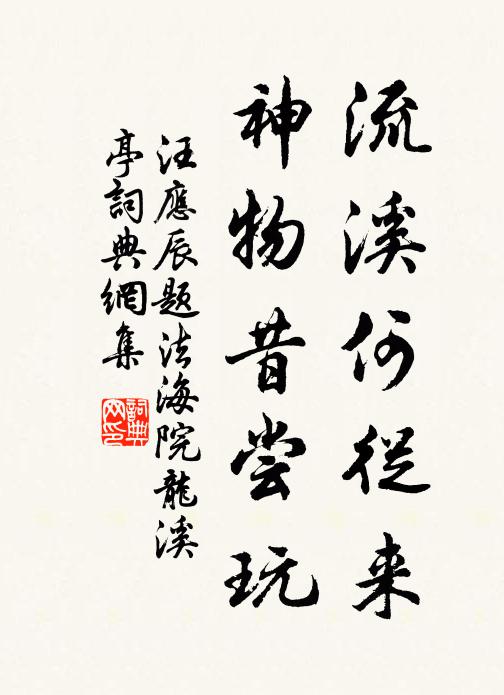 流溪何從来
神物昔尝玩
汪應辰题法海院龍溪
亭詞典網集
詞典网印